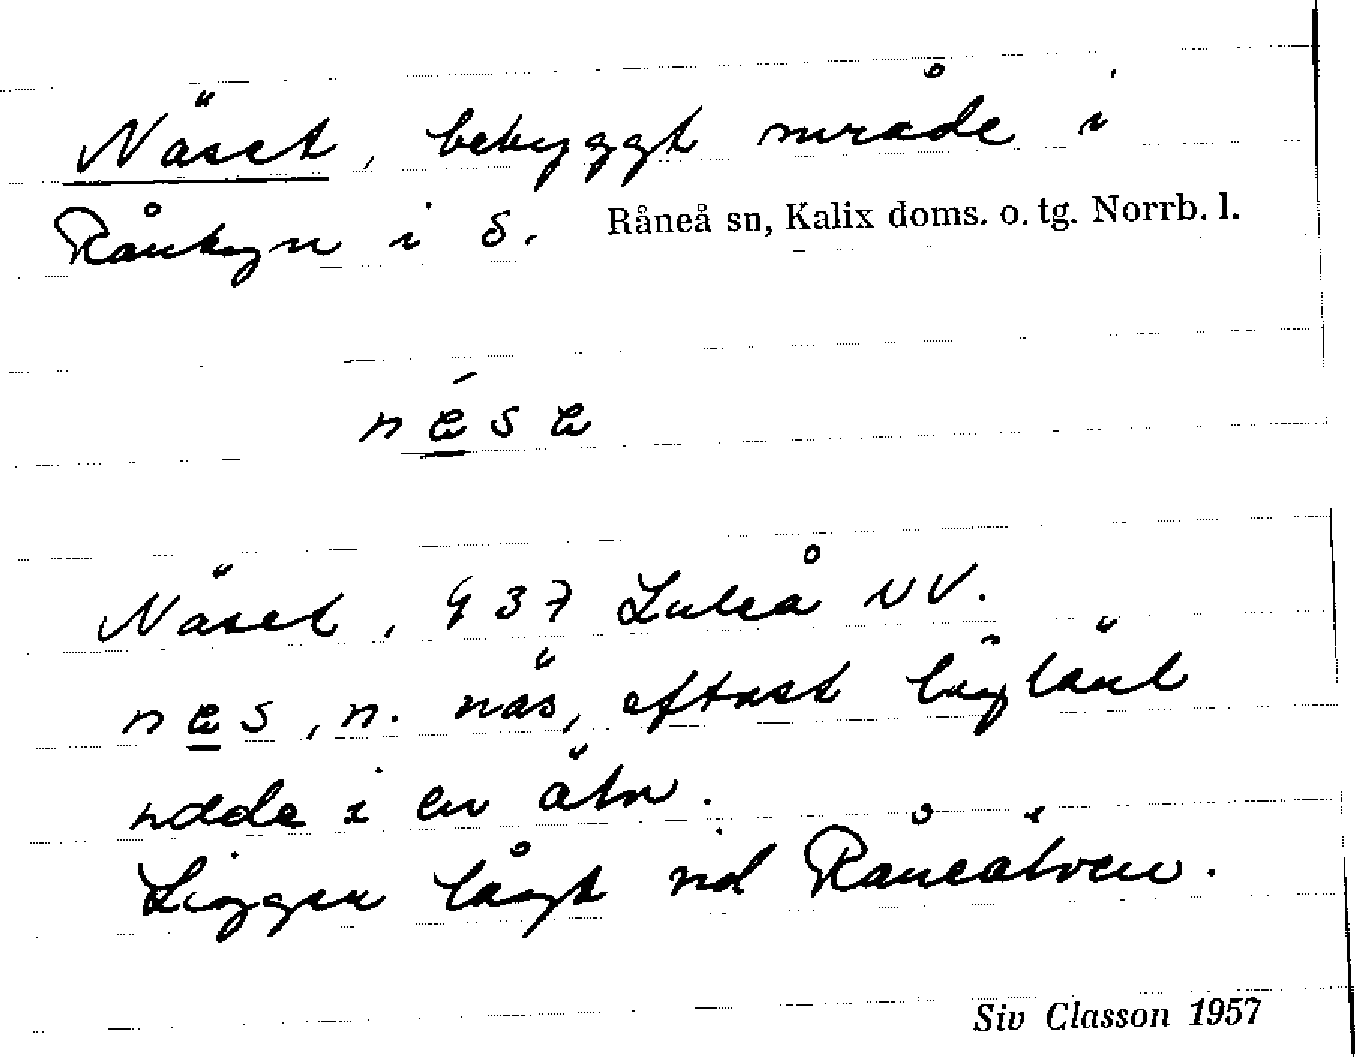 Näset, bebyggt område i
Rånbyn i S. Råneå sn, Kalix doms. o. tg. Norrb. l.
nése
Näset, 937 Luleå NV.
nes, n. näs, oftast låglänt
udde i en älv.
Ligger lågt vid Råneälven.
Siv Classon 1957